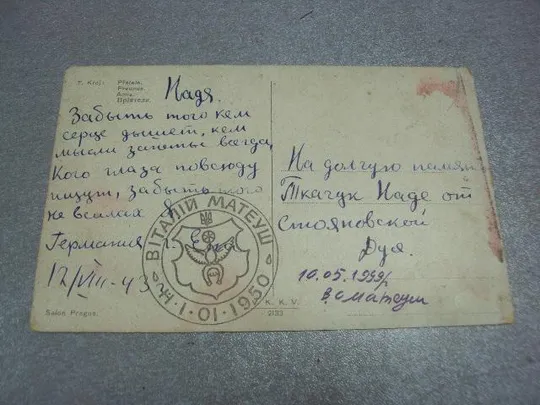 T. Król:
Přátelé.
Freunde.
Amis.
Пріятели.
Надя.
Забыть того кем
серце дышет, кем
мысли заняты всегда,
Кого глаза повсюду
ищут, забыть того
не всилах я
Германия г.
12/VIII-43
На долгую памят
Ткачук Наде от
Стояновской
Дуя.
10.05.1999р
В. Матеуш
ВІТАЛІЙ МАТЕУШ
Н. 1·01·1950
K. K. V.
2133
Salon Prague.